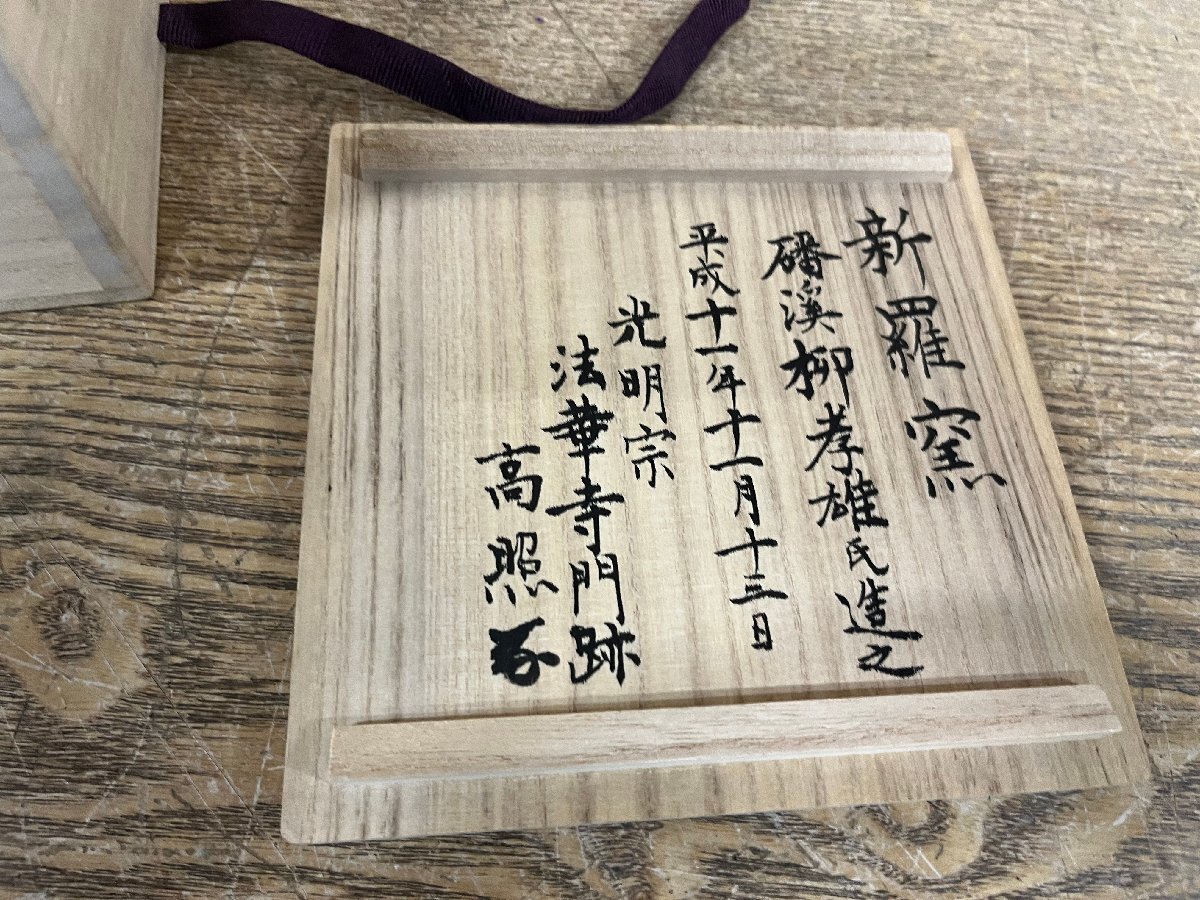 新羅窯
磻溪柳孝雄氏造之
平成十一年十一月十三日
光明宗
法華寺門跡
高照